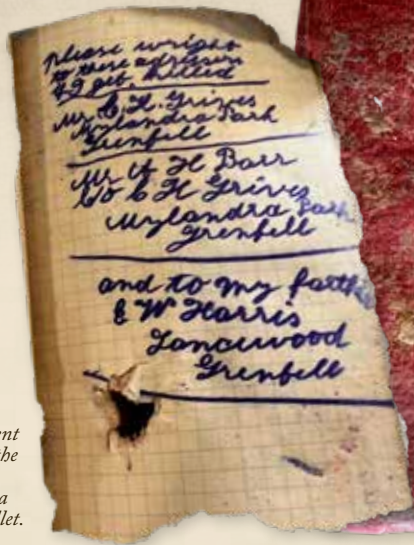 Please wright
to these adresses
if I get killed
Mr C. H. Grives
Mylandra Park
Grenfell
Mr A H Barr
c/o C H Grives
Mylandra Park
Grenfell
and to my farther
E W Harris
Lancewood
Grenfell
ent
the
a
let.